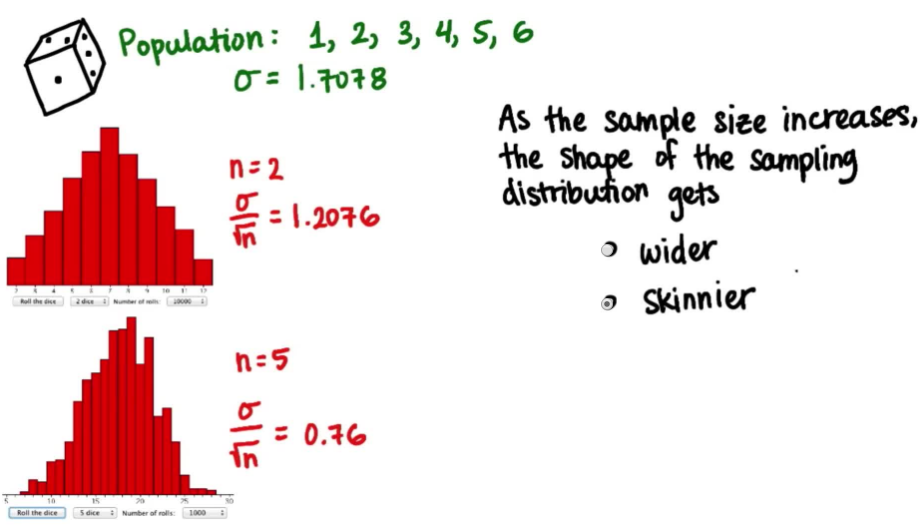 Population: 1, 2, 3, 4, 5, 6
σ = 1.7078
n = 2
σ/√n = 1.2076
2 3 4 5 6 7 8 9 10 11 12
Roll the dice 2 dice Number of rolls: 10000
n = 5
σ/√n = 0.76
5 10 15 20 25 30
Roll the dice 5 dice Number of rolls: 1000
As the sample size increases,
the shape of the sampling
distribution gets
wider
skinnier